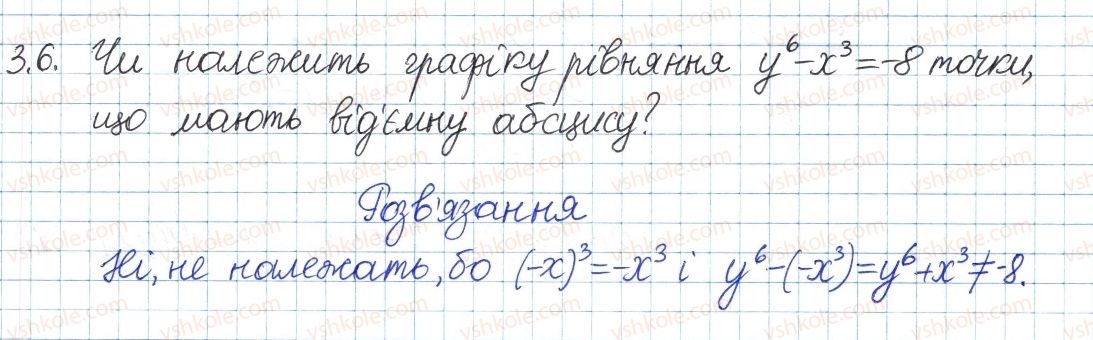 3.6. Чи належить графіку рівняння y⁶-x³=-8 точки,
що мають від'ємну абсцису?
Розв'язання
Ні, не належать, бо (-x)³=-x³ і y⁶-(-x³)=y⁶+x³≠-8.